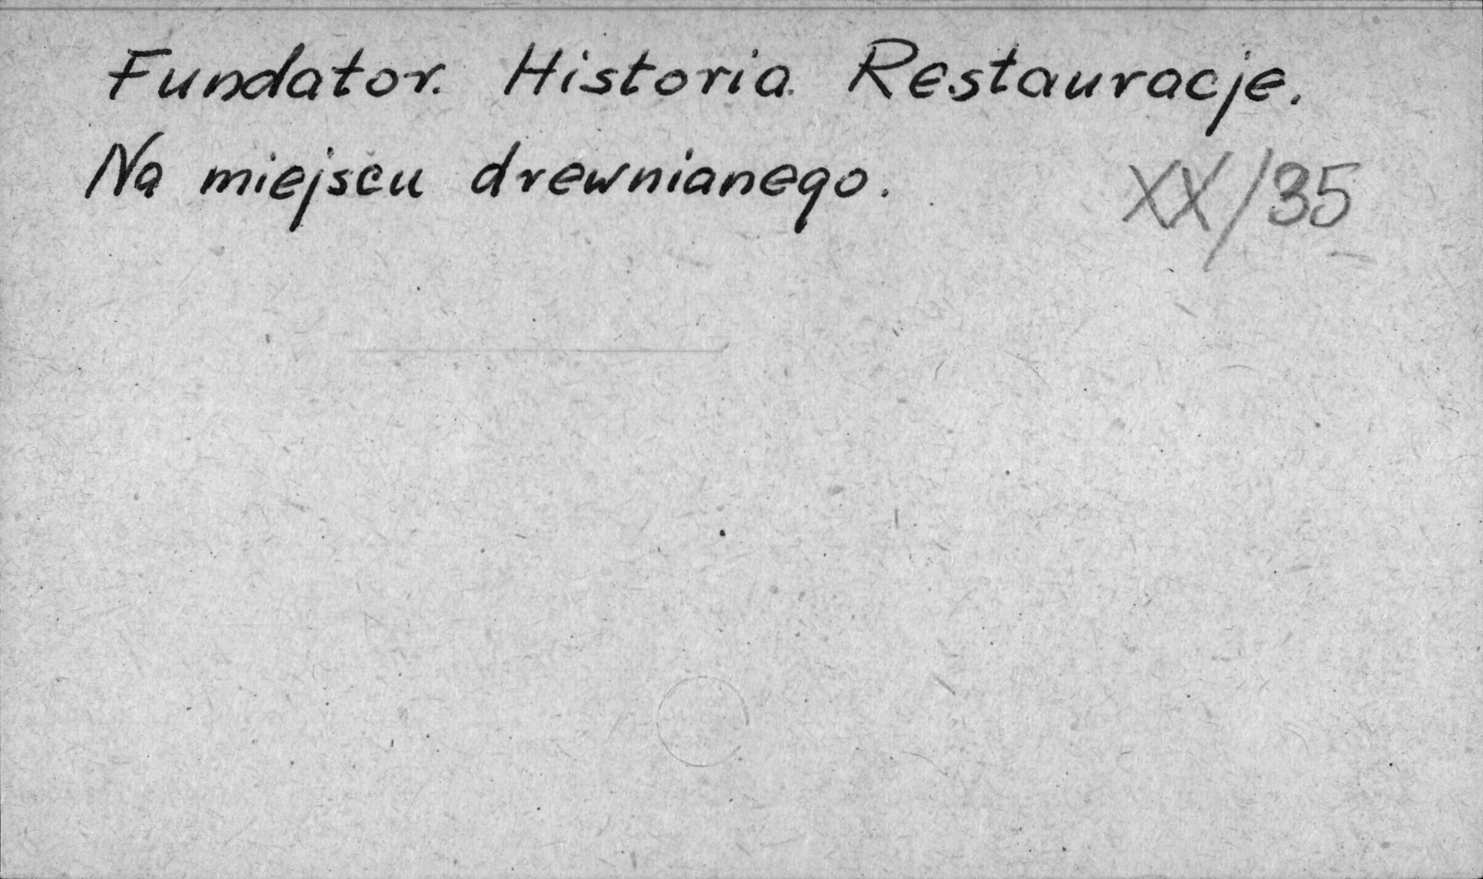 Fundator. Historia. Restauracje.
Na miejscu drewnianego.
XX/35